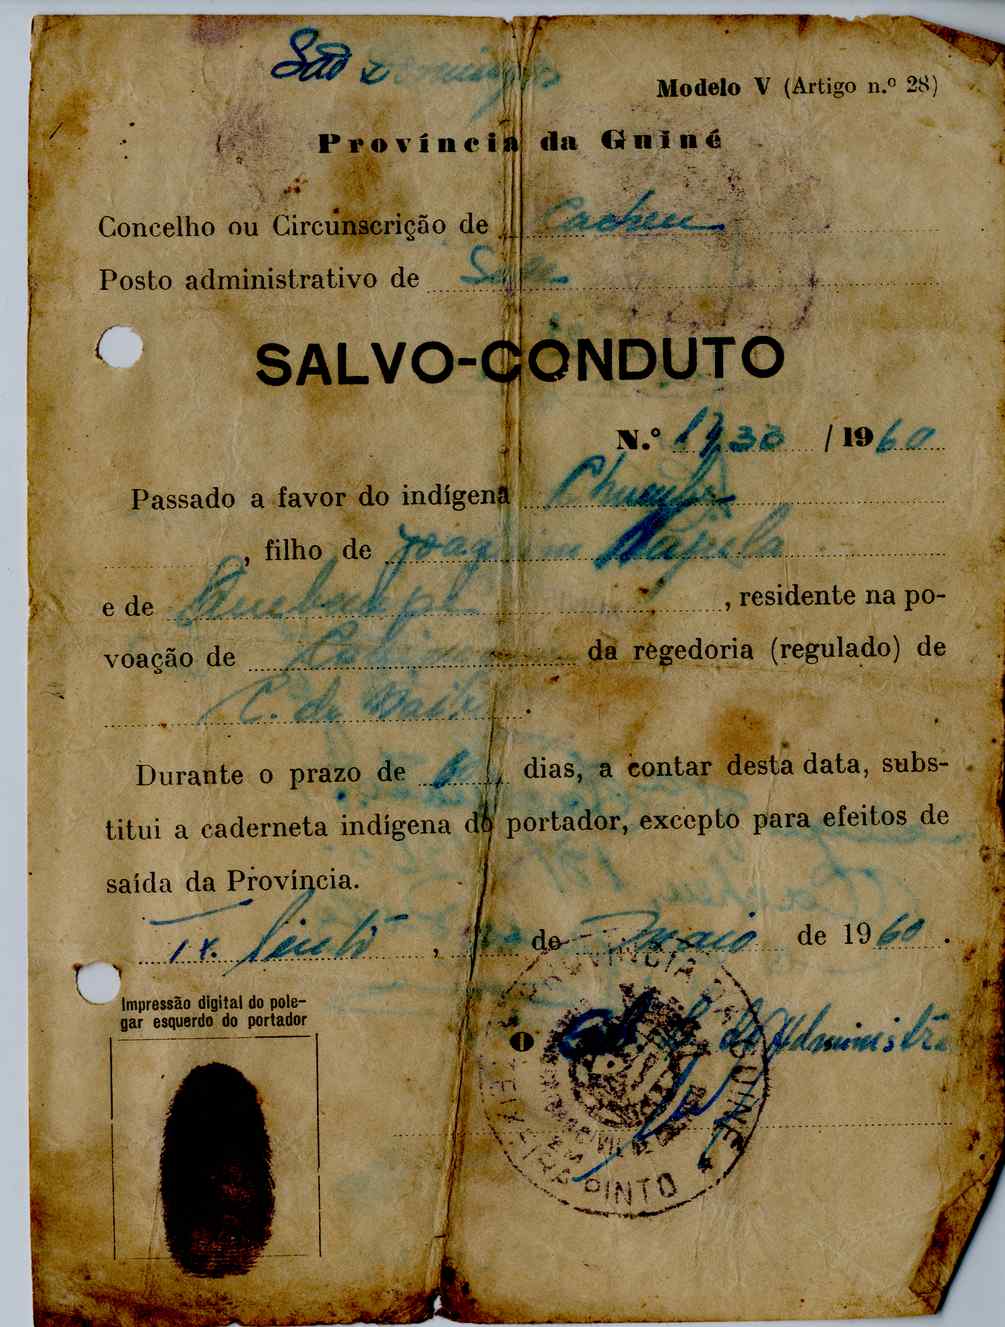 São Domingos
Modelo V (Artigo n.º 28)
Província da Guiné
Concelho ou Circunscrição de Cacheu
Posto administrativo de
SALVO-CONDUTO
N.º /1960
Passado a favor do indígena
, filho de Joaquim
e de , residente na po-
voação de da regedoria (regulado) de
C. de
Durante o prazo de dias, a contar desta data, subs-
titui a caderneta indígena do portador, excepto para efeitos de
saída da Província.
Tx. Pinto, de Maio de 1960.
Impressão digital do pole-
gar esquerdo do portador
O de Administrã
PROVINCIA DA GUINE
TEIXEIRA PINTO